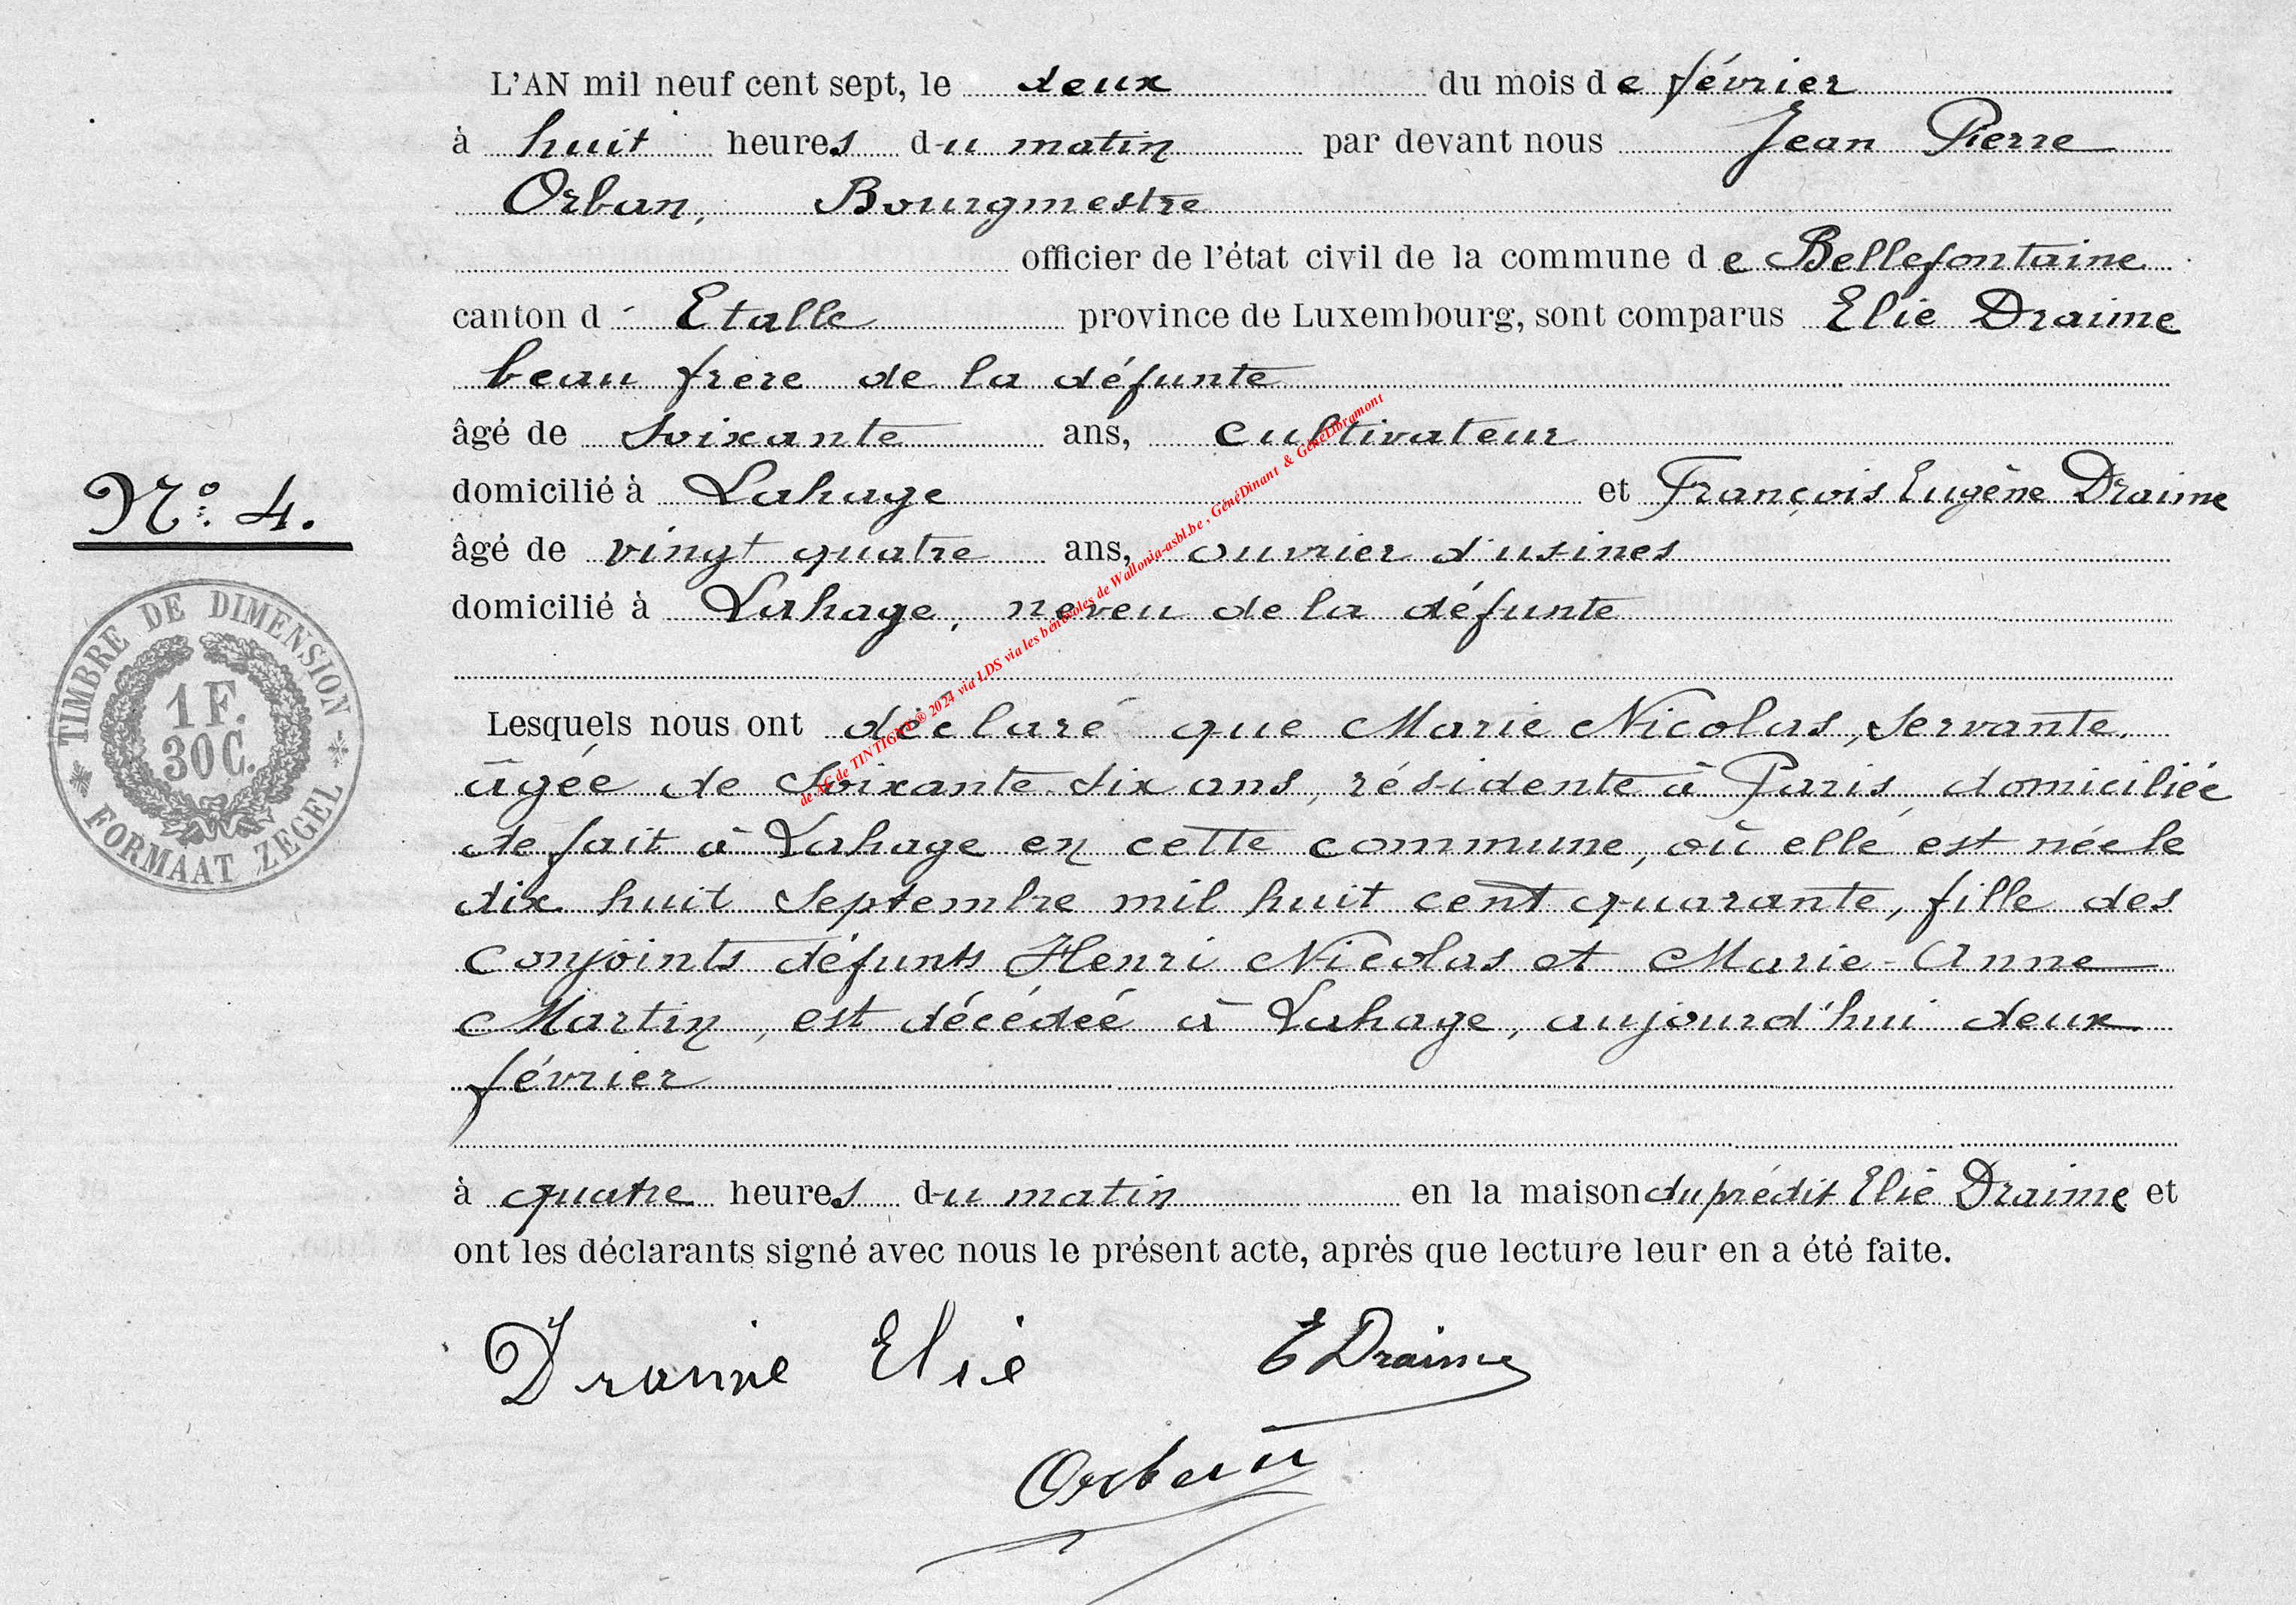 L'AN mil neuf cent sept, le deux du mois de février
à huit heures du matin par devant nous Jean Pierre
Orban, Bourgmestre
officier de l'état civil de la commune de Bellefontaine
canton d' Etalle province de Luxembourg, sont comparus Elie Draime
beau frère de la défunte
âgé de soixante ans, cultivateur
domicilié à Lahage et François Eugène Draime
âgé de vingt quatre ans, ouvrier d'usines
domicilié à Lahage, neveu de la défunte
N° 4.
TIMBRE DE DIMENSION
1 F.
30 C.
FORMAAT ZEGEL
Lesquels nous ont déclaré que Marie Nicolas, servante,
âgée de soixante six ans, résidente à Paris, domiciliée
de fait à Lahage en cette commune, où elle est née le
dix huit Septembre mil huit cent quarante, fille des
conjoints défunts Henri Nicolas et Marie-Anne
Martin, est décédée à Lahage, aujourd'hui deux
février
à quatre heures du matin en la maison du prédit Elie Draime et
ont les déclarants signé avec nous le présent acte, après que lecture leur en a été faite.
Draime Elie E Draime
Orban
de AC de TINTIGNY ® 2024 via LDS via les bénévoles de Wallonia-asbl.be , GénéDinant & GénéLibramont